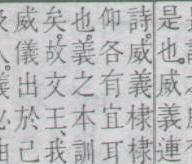 是也。威義連
詩。威義棣棣
仰各有宜耳
也。義之本訓
矣。故文王、我
威儀出於己